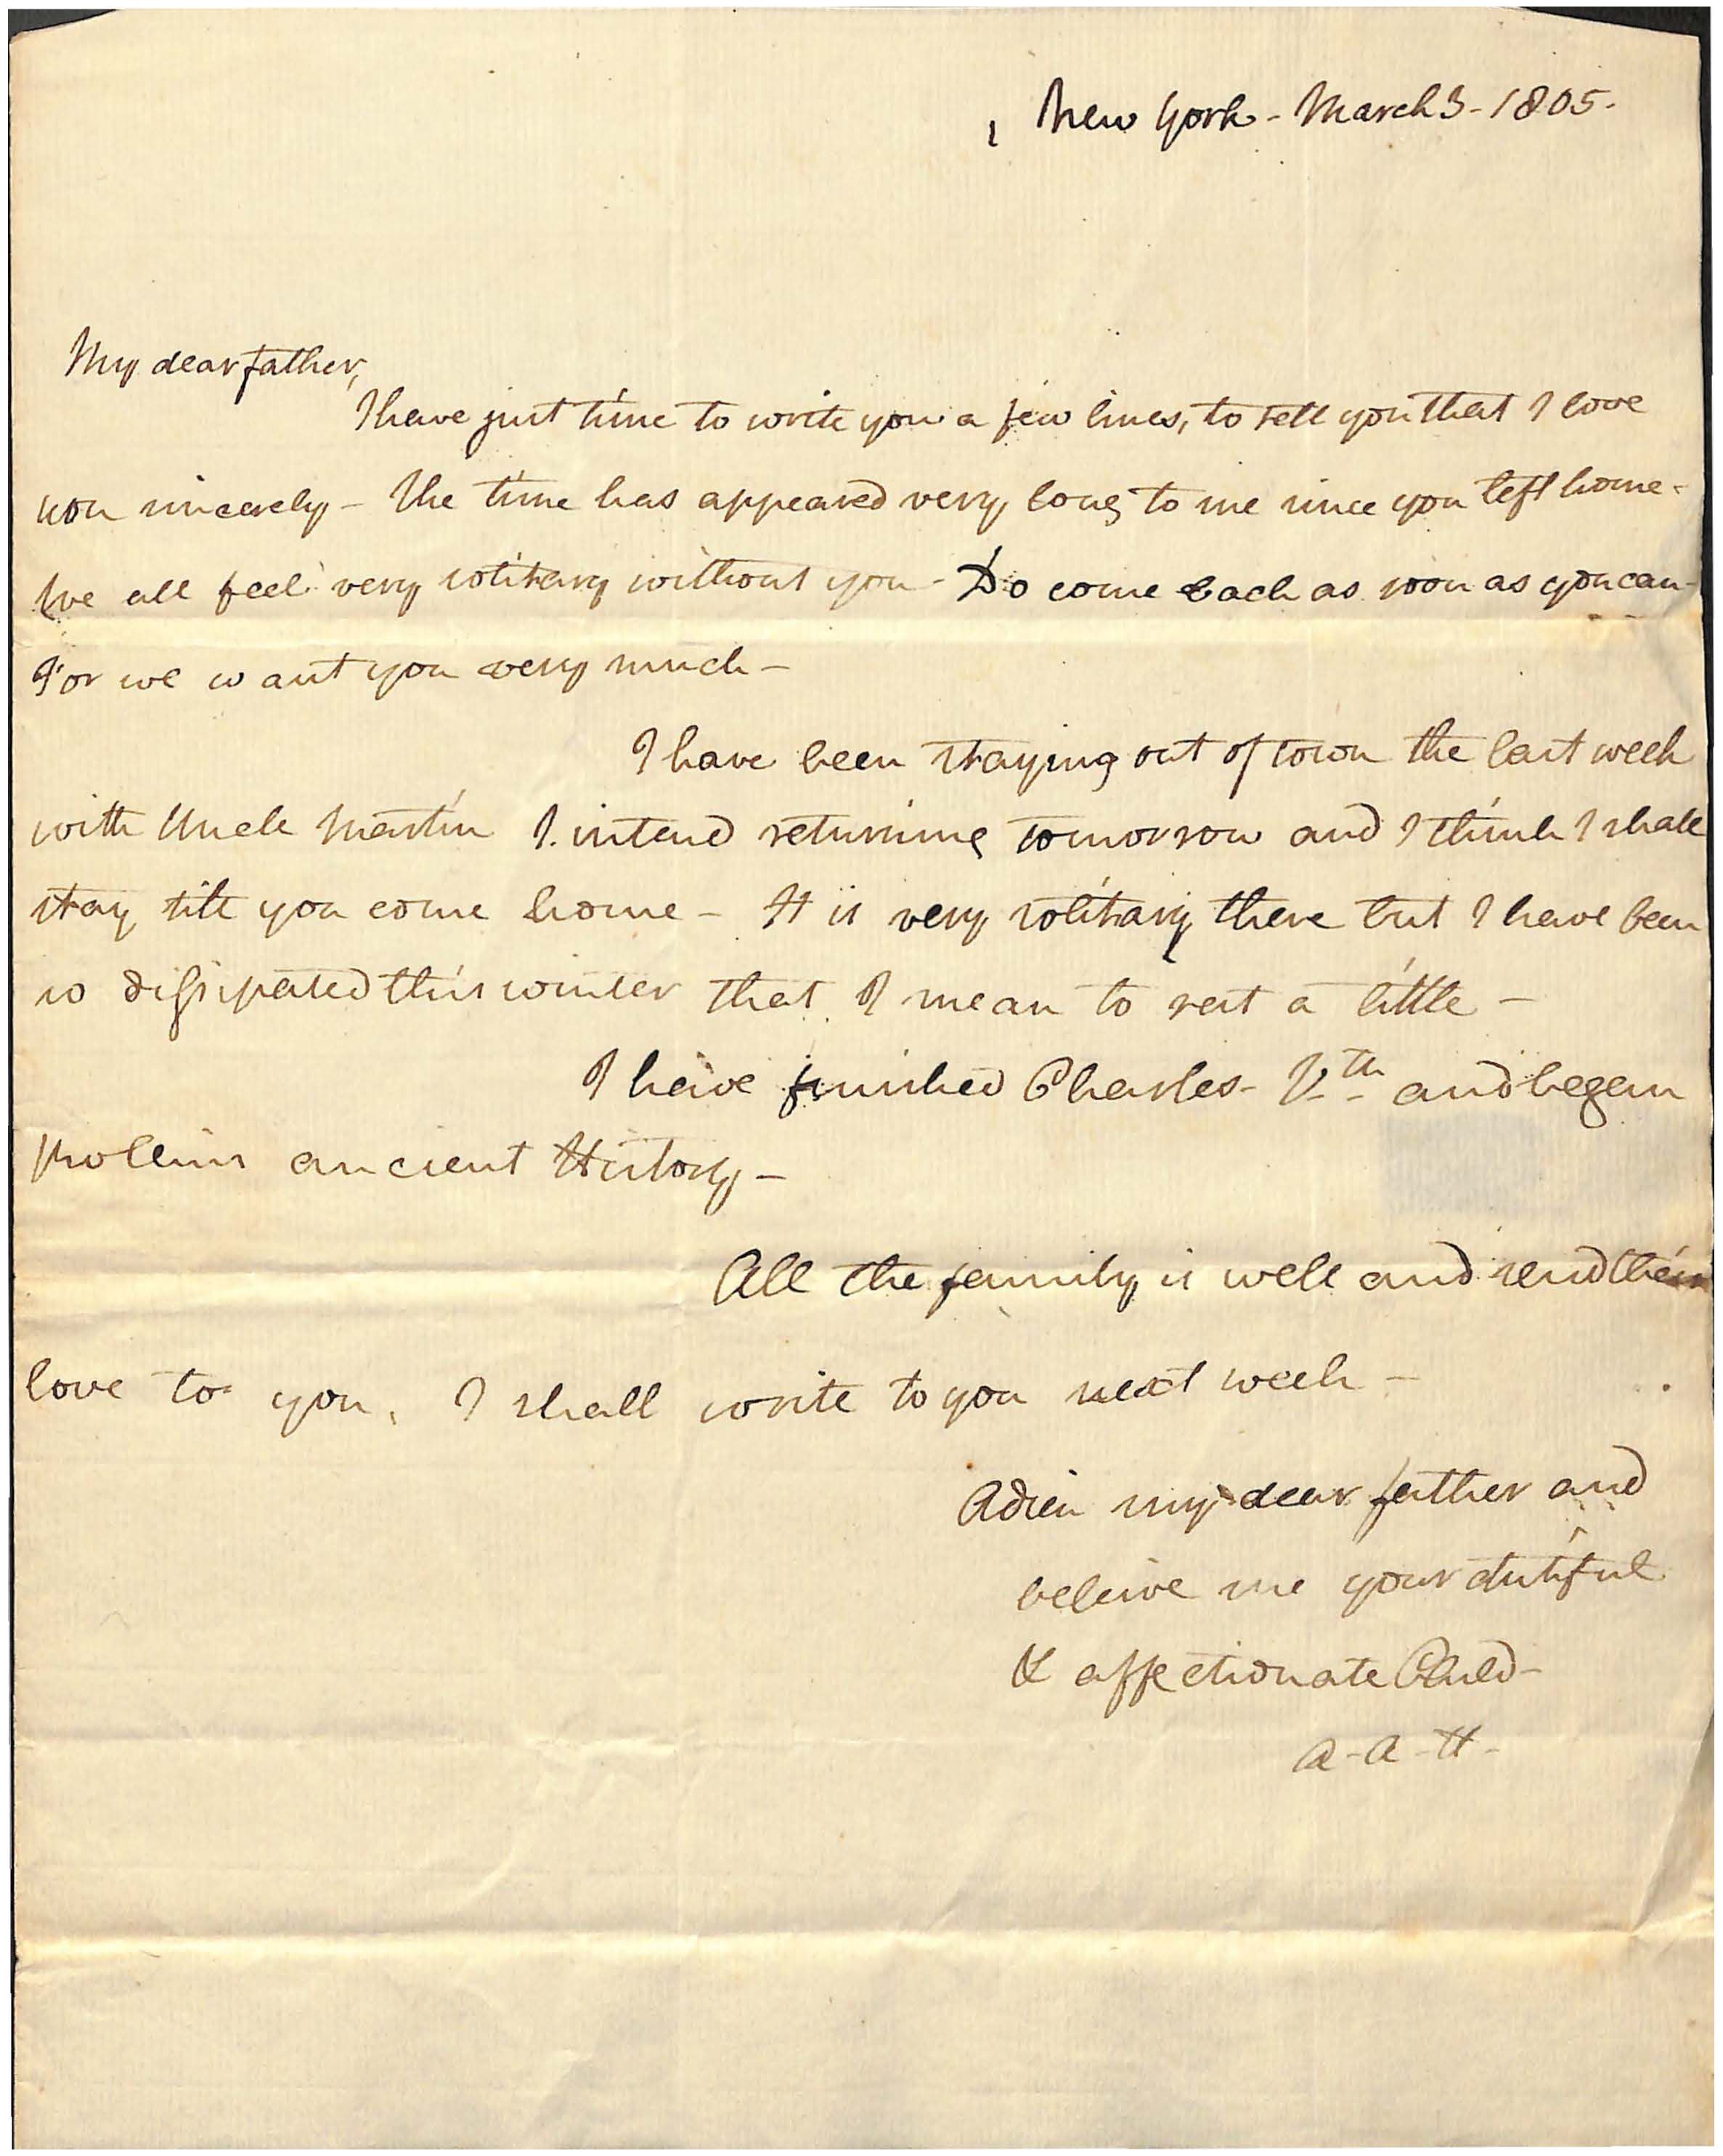 New York - March 3 - 1805.
My dear father,
I have just time to write you a few lines, to tell you that I love
you sincerely - The time has appeared very long to me since you left home -
We all feel very solitary without you - Do come back as soon as you can -
For we want you very much -
I have been staying out of town the last week
with Uncle Martin I intend returning tomorrow and I think I shall
stay till you come home - It is very solitary there but I have been
so dissipated this winter that I mean to rest a little -
I have finished Charles - Vth - and began
Rollins ancient History -
All the family is well and send their
love to you. I shall write to you next week -
Adieu my dear father and
beleive me your dutiful
& affectionate Child -
A - A - H -